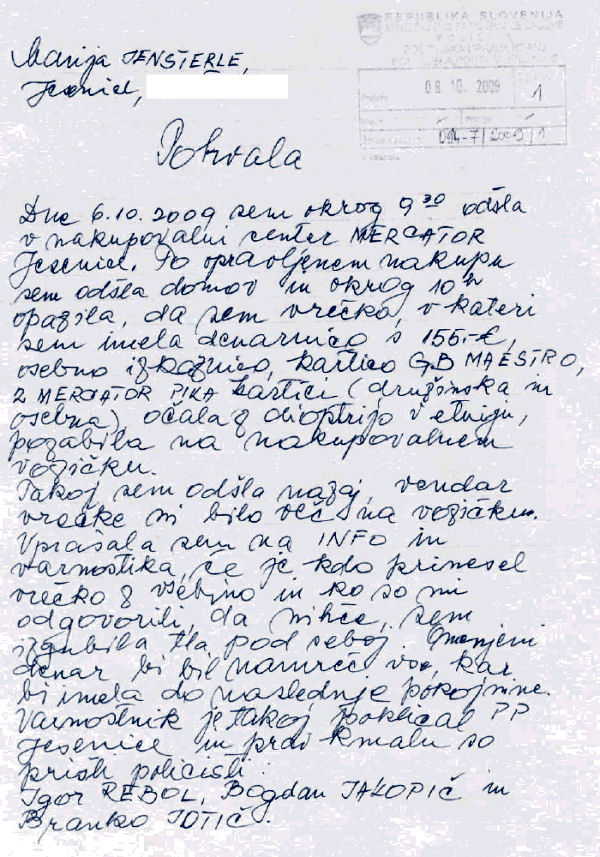 REPUBLIKA SLOVENIJA
POLICIJA
08. 10. 2009
1
094-7/2009/1
Marija JENSTERLE,
Jesenice,
Pohvala
Dne 6.10.2009 sem okrog 9 30 odšla
v nakupovalni center MERCATOR
Jesenice. Po opravljenem nakupu
sem odšla domov in okrog 10h
opazila, da sem vrečko, v kateri
sem imela denarnico s 155.-€,
osebno izkaznico, kartico GB MAESTRO,
2 MERCATOR PIKA kartici (družinska in
osebna) očala z dioptrijo v etuiju,
pozabila na nakupovalnem
vozičku.
Takoj sem odšla nazaj, vendar
vrečke ni bilo več na vozičku.
Vprašala sem na INFO in
varnostika, če je kdo prinesel
vrečko z vsebino in ko so mi
odgovorili, da nihče, sem
izgubila tla pod seboj. Omenjeni
denar bi bil namreč vse, kar
bi imela do naslednje pokojnine.
Varnostnik je takoj poklical PP
Jesenice in prav kmalu so
prišli policisti
Igor REBOL, Bogdan JAKOPIČ in
Branko JOTIČ.